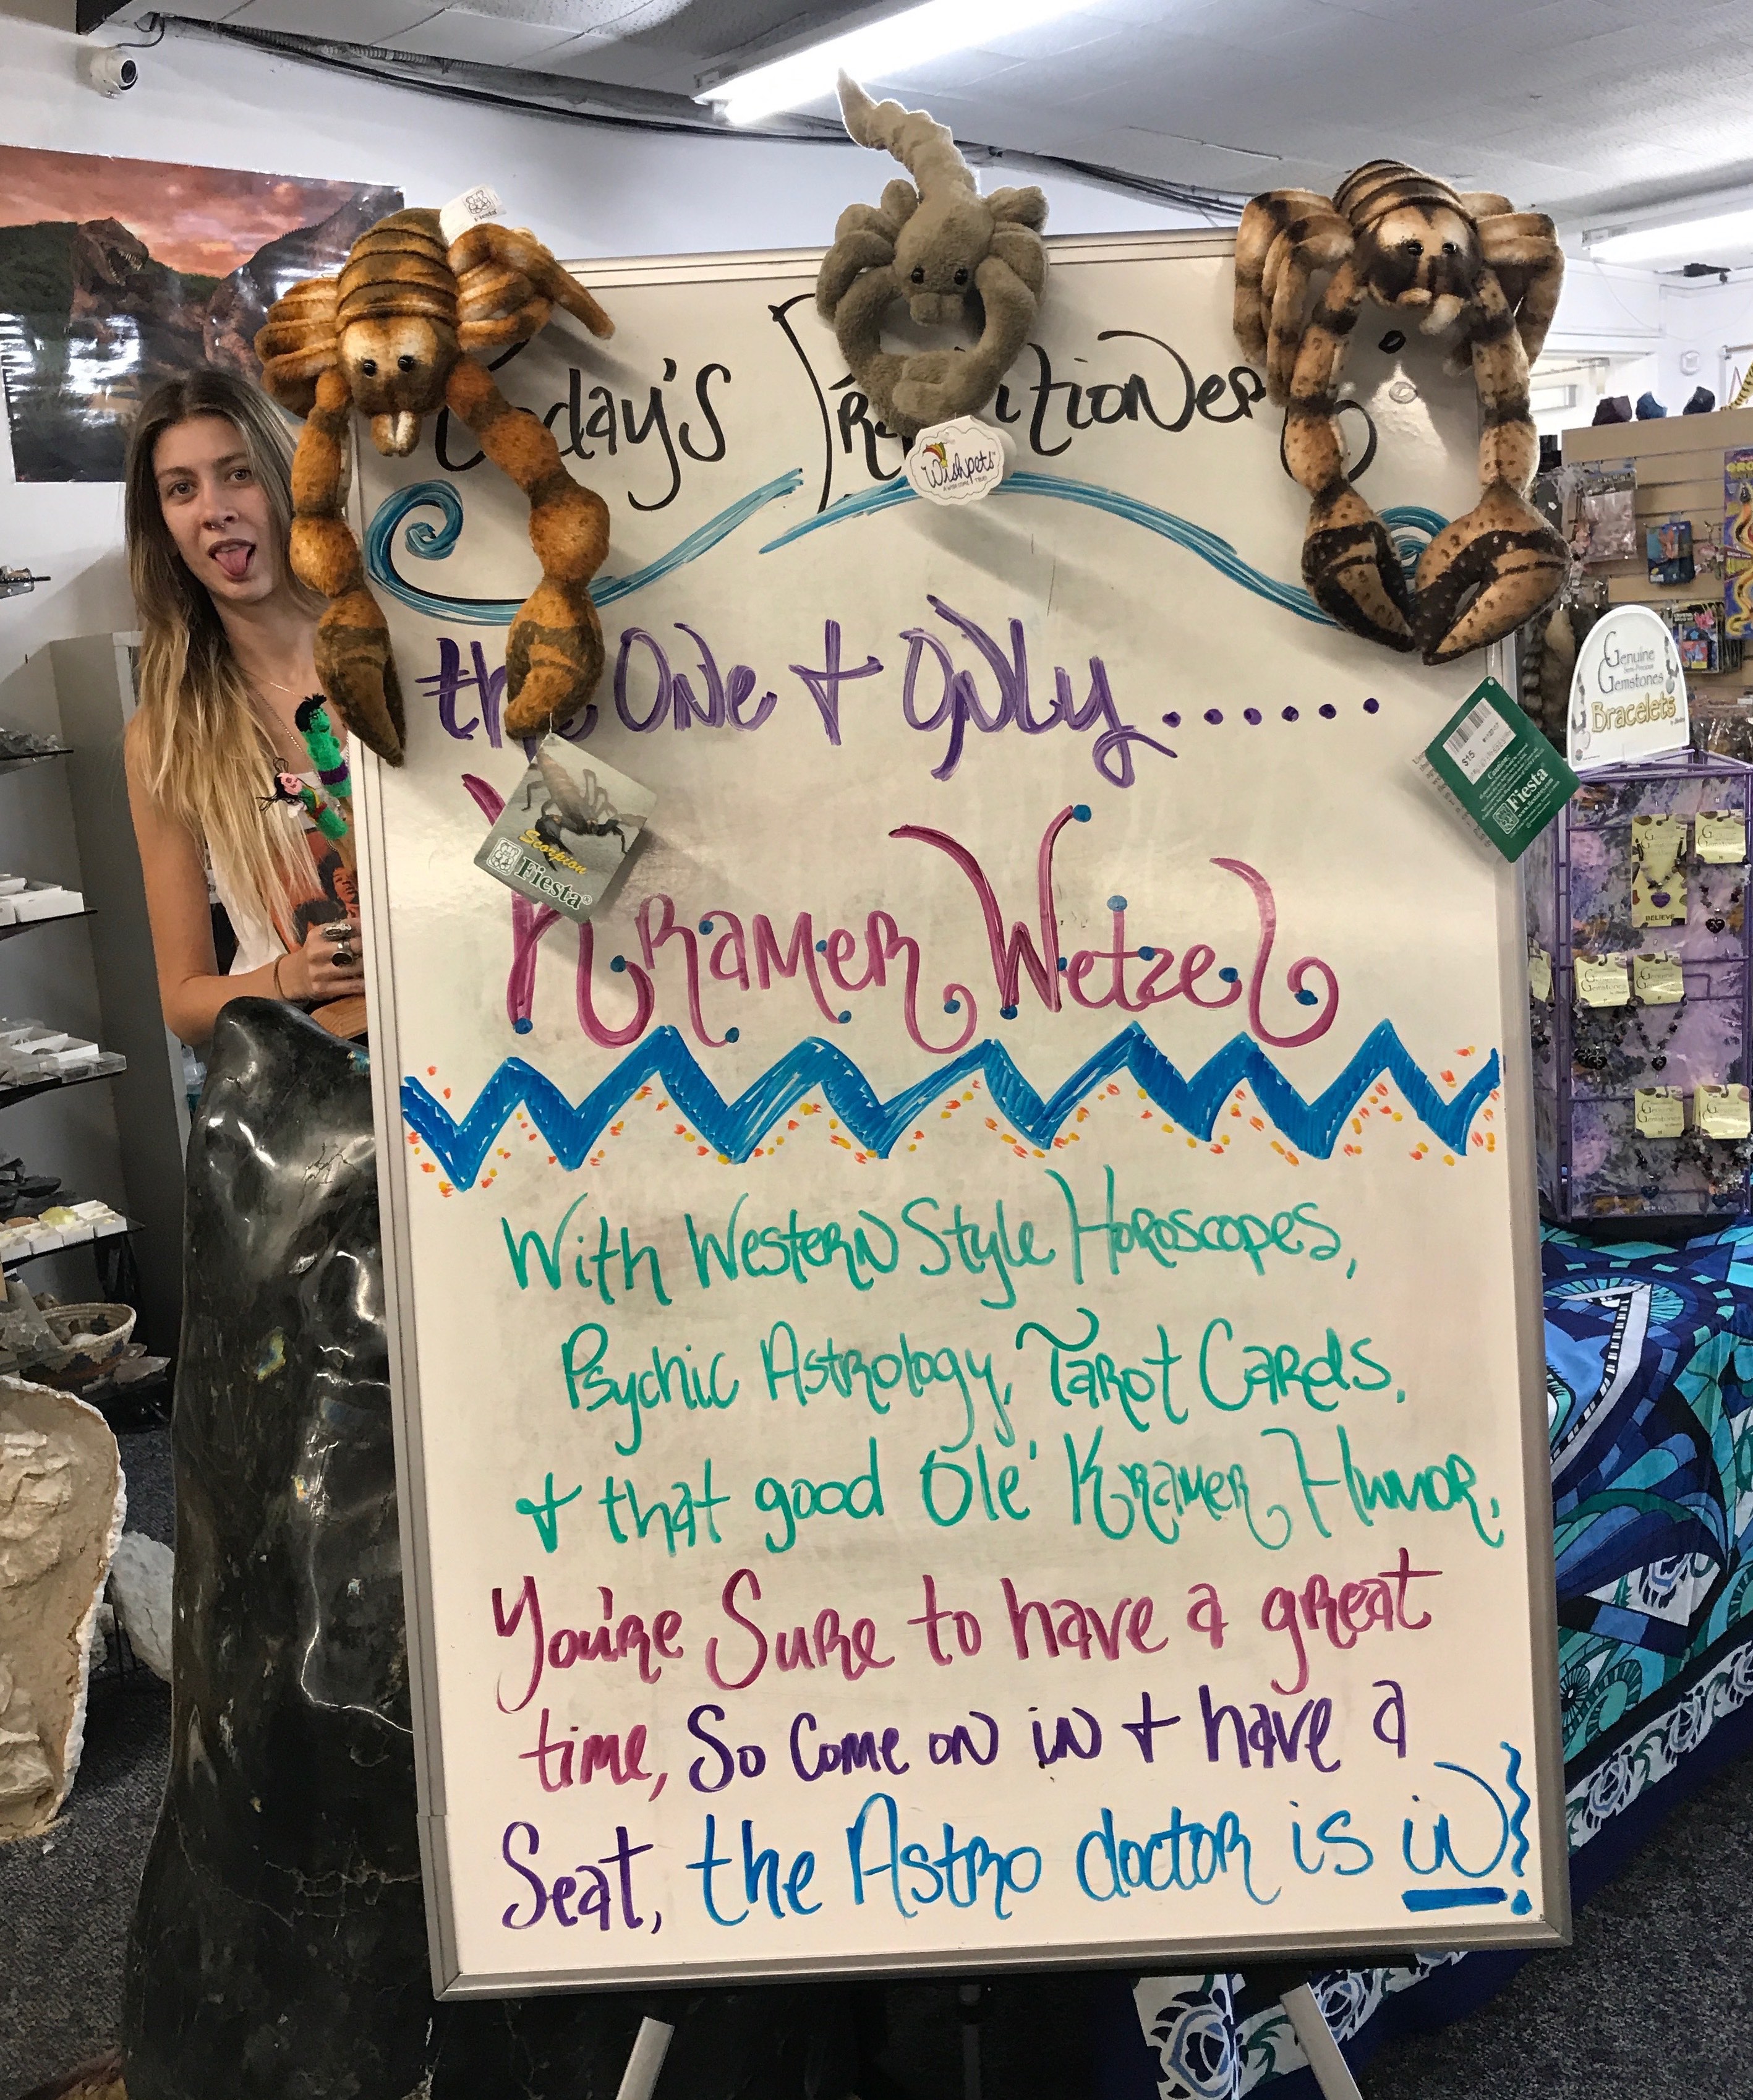 Today's Practitioner
the One + Only......
Kramer Wetzel
With Western Style Horoscopes,
Psychic Astrology, Tarot Cards,
+ that good Ole' Kramer Humor,
You're Sure to have a great
time, So Come on in + have a
Seat, the Astro doctor is in!
Wishpets
Scorpion
Fiesta
$15
Fiesta
Genuine
Semi-Precious
Gemstones
Bracelets
BELIEVE